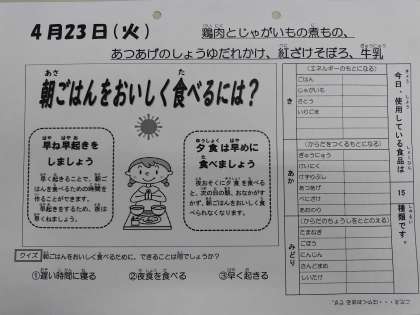 4月23日(火)
鶏肉とじゃがいもの煮もの、
あつあげのしょうゆだれかけ、紅ざけそぼろ、牛乳
朝ごはんをおいしく食べるには?
早ね早起きを
しましょう
早く起きることで、朝ご
はんを食べるための時間を
作ることができます。
早起きをするため、夜は
早くねましょう。
夕食は早めに
食べましょう
夜おそくに夕食を食べる
と、次の日の朝、おなかがす
かず、朝ごはんをおいしく食
べられなくなります。
クイズ 朝ごはんをおいしく食べるために、できることは何でしょうか?
①遅い時間に寝る ②夜食を食べる ③早く起きる
き
(エネルギーのもとになる)
ごはん
じゃがいも
さとう
あか
(からだをつくるもとになる)
ぎゅうにゅう
けいにく
あつあげ
べにざけ
みどり
(からだのちょうしをととのえる)
たまねぎ
ごぼう
にんじん
さんどまめ
しいたけ
今日、使用している食品は
15
種類です。